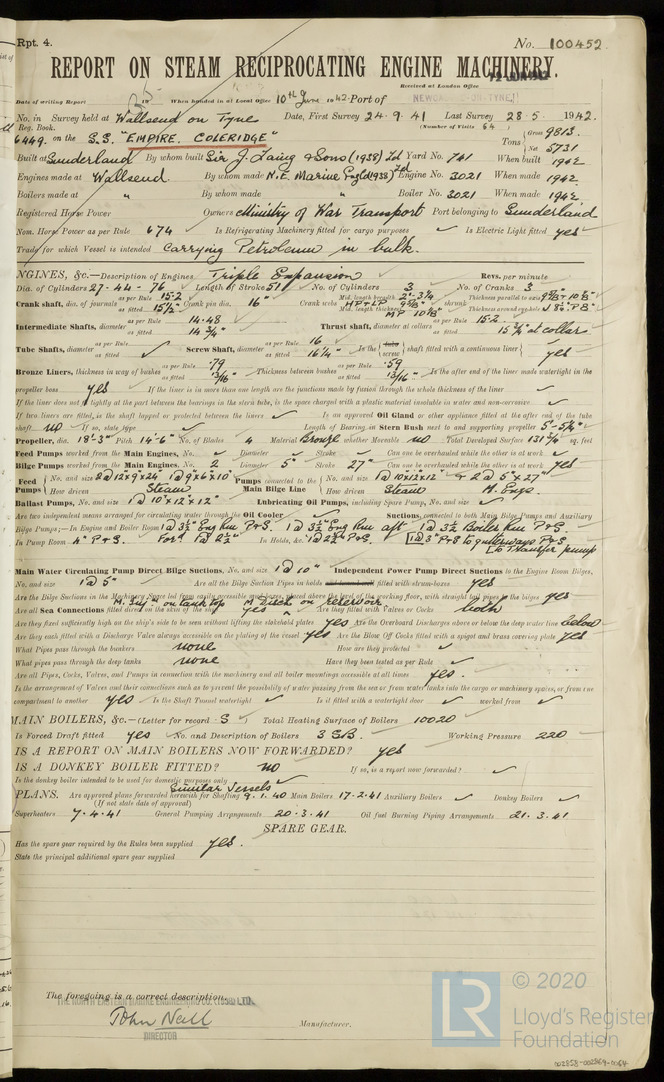 Rpt. 4. No. 100452
REPORT ON STEAM RECIPROCATING ENGINE MACHINERY.
Received at London Office
Date of writing Report 19 When handed in at Local Office 10th June 1942. Port of NEWCASTLE-ON-TYNE
No. in Survey held at Wallsend on Tyne Date, First Survey 24.9.41 Last Survey 28.5.1942.
Reg. Book. (Number of Visits 64)
6449. on the S.S. "EMPIRE COLERIDGE" Tons Gross 9813. Net 5731
Built at Sunderland By whom built Sir J. Laing & Sons (1938) Ltd Yard No. 741 When built 1942
Engines made at Wallsend By whom made N.E. Marine Eng (1938) Ltd Engine No. 3021 When made 1942.
Boilers made at " By whom made " Boiler No. 3021 When made 1942.
Registered Horse Power Owners Ministry of War Transport Port belonging to Sunderland
Nom. Horse Power as per Rule 674 Is Refrigerating Machinery fitted for cargo purposes ✓ Is Electric Light fitted yes
Trade for which Vessel is intended Carrying Petroleum in bulk.
ENGINES, &c.—Description of Engines Triple Expansion Revs. per minute
Dia. of Cylinders 27-44-76 Length of Stroke 51 No. of Cylinders 3 No. of Cranks 3
Crank shaft, dia. of journals as per Rule 15.2 as fitted 15½" Crank pin dia. 16" Crank webs Mid. length breadth 2'-3¼ Mid. length thickness shrunk Thickness parallel to axis Thickness around eyehole
Intermediate Shafts, diameter as per Rule 14.48 as fitted 14¾" Thrust shaft, diameter at collars as per Rule 15.2 as fitted 15¾" at collars
Tube Shafts, diameter as per Rule as fitted ✓ Screw Shaft, diameter as per Rule 16 as fitted 16¼" Is the tube screw shaft fitted with a continuous liner yes
Bronze Liners, thickness in way of bushes as per Rule .79 as fitted 13/16" Thickness between bushes as per Rule .59 as fitted 13/16" Is the after end of the liner made watertight in the
propeller boss yes If the liner is in more than one length are the junctions made by fusion through the whole thickness of the liner ✓
If the liner does not fit tightly at the part between the bearings in the stern tube, is the space charged with a plastic material insoluble in water and non-corrosive ✓
If two liners are fitted, is the shaft lapped or protected between the liners ✓ Is an approved Oil Gland or other appliance fitted at the after end of the tube
shaft no If so, state type ✓ Length of Bearing in Stern Bush next to and supporting propeller 5'-5¼"
Propeller, dia. 18'-3" Pitch 14'-6" No. of Blades 4 Material Bronze whether Moveable no Total Developed Surface sq. feet
Feed Pumps worked from the Main Engines, No. ✓ Diameter ✓ Stroke ✓ Can one be overhauled while the other is at work ✓
Bilge Pumps worked from the Main Engines, No. 2 Diameter 5" Stroke 27" Can one be overhauled while the other is at work yes
Feed Pumps No. and size 2@12×9×24 1@9×6×10 How driven Steam Pumps connected to the Main Bilge Line No. and size 1@10×12×12 & 2@5"×27" How driven Steam M. Engs.
Ballast Pumps, No. and size 1@10×12×12" Lubricating Oil Pumps, including Spare Pump, No. and size ✓
Are two independent means arranged for circulating water through the Oil Cooler ✓ Suctions, connected to both Main Bilge Pumps and Auxiliary
Bilge Pumps;—In Engine and Boiler Room 1@3½" Eng Rm P&S. 1@3½" Eng Rm aft 1@3½ Boiler Rm P&S.
In Pump Room 4" P&S. Ford 1@2½" In Holds, &c. 1@2½" P&S. 1@3" P&S to gutterways P&S
to transfer pump
Main Water Circulating Pump Direct Bilge Suctions, No. and size 1@10" Independent Power Pump Direct Suctions to the Engine Room Bilges,
No. and size 1@5" Are all the Bilge Suction Pipes in holds fitted with strum-boxes yes
Are the Bilge Suctions in the Machinery Space led from easily accessible mud-boxes, placed above the level of the working floor, with straight tail pipes to the bilges yes
M. Inj. on tank top M Disch. on reservoir
Are all Sea Connections fitted direct on the skin of the ship yes Are they fitted with Valves or Cocks both
Are they fixed sufficiently high on the ship's side to be seen without lifting the stokehold plates yes Are the Overboard Discharges above or below the deep water line below
Are they each fitted with a Discharge Valve always accessible on the plating of the vessel yes Are the Blow Off Cocks fitted with a spigot and brass covering plate yes
What Pipes pass through the bunkers none How are they protected ✓
What pipes pass through the deep tanks none Have they been tested as per Rule ✓
Are all Pipes, Cocks, Valves, and Pumps in connection with the machinery and all boiler mountings accessible at all times yes.
Is the arrangement of Valves and their connections such as to prevent the possibility of water passing from the sea or from water tanks into the cargo or machinery spaces, or from one
compartment to another yes Is the Shaft Tunnel watertight ✓ Is it fitted with a watertight door ✓ worked from ✓
MAIN BOILERS, &c.—(Letter for record S) Total Heating Surface of Boilers 10020
Is Forced Draft fitted yes No. and Description of Boilers 3 S.B. Working Pressure 220
IS A REPORT ON MAIN BOILERS NOW FORWARDED? yes
IS A DONKEY BOILER FITTED? no If so, is a report now forwarded? ✓
Is the donkey boiler intended to be used for domestic purposes only ✓
PLANS. Are approved plans forwarded herewith for Shafting Similar Vessels 9.1.40 Main Boilers 17.2.41 Auxiliary Boilers ✓ Donkey Boilers ✓
(If not state date of approval)
Superheaters 7.4.41 General Pumping Arrangements 20.3.41 Oil fuel Burning Piping Arrangements 21.3.41
SPARE GEAR.
Has the spare gear required by the Rules been supplied yes.
State the principal additional spare gear supplied
The foregoing is a correct description.
THE NORTH EASTERN MARINE ENGINEERING CO. (1938) LTD.
John Neill Manufacturer.
DIRECTOR
© 2020
LR Lloyd's Register
Foundation
002858-002869-0064